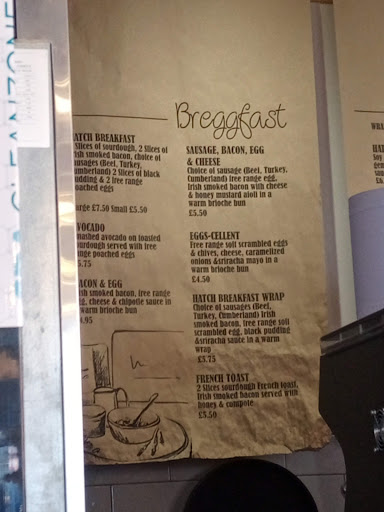 CLEANZONE
Breggfast
ATCH BREAKFAST
Slices of sourdough, 2 Slices of
ish smoked bacon, choice of
usages (Beef, Turkey,
umberland) 2 Slices of black
udding & 2 free range
oached eggs
arge £7.50 Small £5.50
VOCADO
mashed avocado on toasted
urdough served with free
nge poached eggs
5.75
ACON & EGG
ish smoked bacon, free range
g, cheese & chipotle sauce in
warm brioche bun
4.95
SAUSAGE, BACON, EGG
& CHEESE
Choice of sausage (Beef, Turkey,
Cumberland) free range egg,
Irish smoked bacon with cheese
& honey mustard aioli in a
warm brioche bun
£5.50
EGGS-CELLENT
Free range soft scrambled eggs
& chives, cheese, caramelized
onions &sriracha mayo in a
warm brioche bun
£4.50
HATCH BREAKFAST WRAP
Choice of sausages (Beef,
Turkey, Cumberland) Irish
smoked bacon, free range soft
scrambled egg, black pudding
&sriracha sauce in a warm
wrap
£5.75
FRENCH TOAST
2 Slices sourdough French toast,
Irish smoked bacon served with
honey & compote
£5.50
WHA
HAT